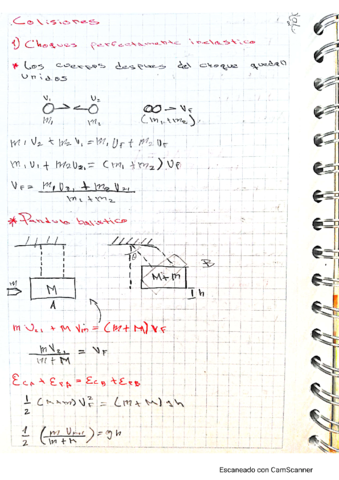 Colisiones
1) Choques perfectamente inelastico
* Los cuerpos despues del choque quedan
unidos
V₁ V₂
m₁ m₂
V_F
(m₁+m₂)
m₁V₂ + m₂V₁ = m₁V_F + m₂V_F
m₁V₁ + m₂V₂₁ = (m₁+m₂)V_F
V_F = (m₁V₂₁ + m₂V₂₁)/(m₁+m₂)
* Pendulo balistico
θ
m M M+m B
A h
m V₂₁ + M Vm = (m+M)V_F
m V₂₁/(m+M) = V_F
E_CA + E_PA = E_CB + E_PB
1/2 (m+m)V_F² = (m+M)gh
= gh
Escaneado con CamScanner